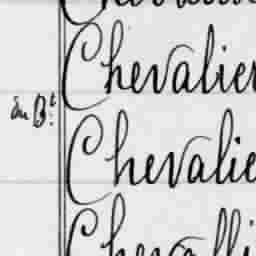 Chevalier
du Bt.
Chevalie
Chevalli